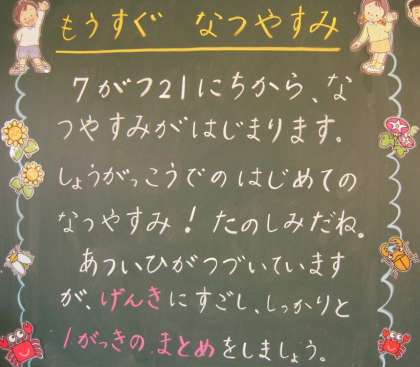 もうすぐ　なつやすみ
7がつ21にちから、な
つやすみがはじまります。
しょうがっこうでのはじめての
なつやすみ！たのしみだね。
あついひがつづいています
が、げんきにすごし、しっかりと
1がっきの まとめをしましょう。